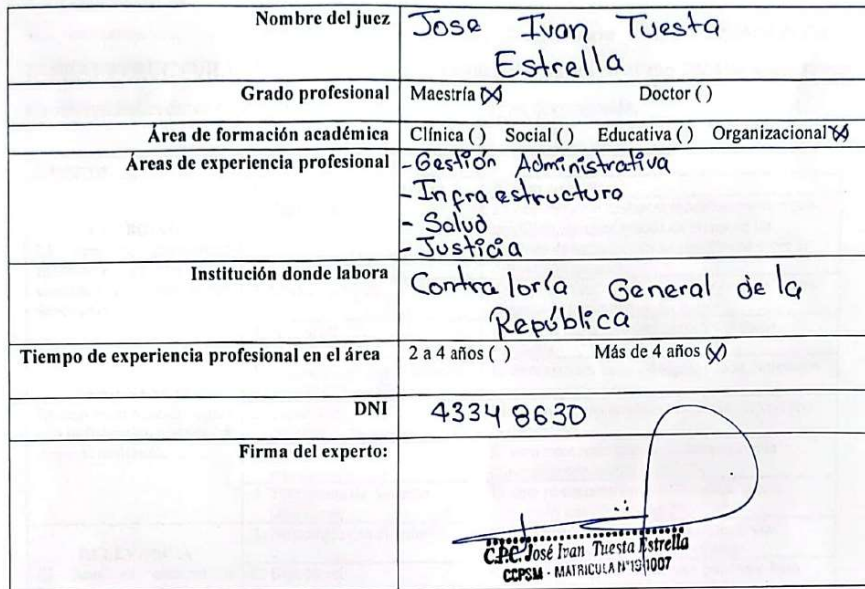 Nombre del juez Jose Ivan Tuesta
Estrella
Grado profesional Maestría (X) Doctor ( )
Área de formación académica Clínica ( ) Social ( ) Educativa ( ) Organizacional (X)
Áreas de experiencia profesional -Gestión Administrativa
-Infraestructura
- Salud
- Justicia
Institución donde labora Contraloría General de la
República
Tiempo de experiencia profesional en el área 2 a 4 años ( ) Más de 4 años (X)
DNI 43348630
Firma del experto:
C.P.C. José Ivan Tuesta Estrella
CCPSM - MATRICULA N°19-1007